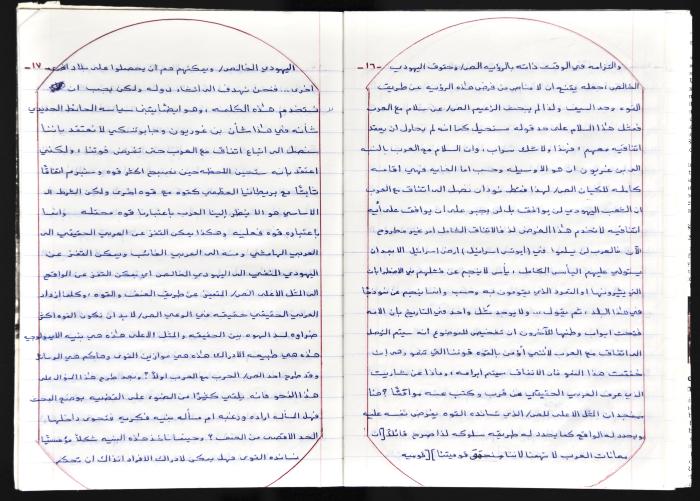 -١٦-
والتزامه في الوقت ذاته بالرؤية الصهيونية وحقوق اليهودي
الخالص اجعله يقتنع ان لا مناص من فرض هذه الرؤية عن طريق
القوة وحد السيف ولذا لم يبحث الزعيم الصهيوني عن سلام مع العرب
فمثل هذا السلام على حد قوله مستحيل كما انه لم يحاول ان يعقد
اتفاقية معهم فهذا ولا شك سراب، وان السلام مع العرب بالنسبة
الى بن غوريون ان هو الا وسيلة وحسب اما الغاية فهي اقامة
كاملة للكيان الصهيوني لهذا فقط نود ان نصل الى اتفاق مع العرب
ان الشعب اليهودي لن يوافق بل لن يجبر على ان يوافق على أية
اتفاقية لا تخدم هذا الغرض لذا فالاتفاق الشامل امر غير مطروح
الآن فالعرب لن يسلموا في (ايرتس اسرائيل) ارض اسرائيل الا بعد ان
يستولي عليهم اليأس الكامل، يأس لا ينجم عن فشلهم في الاضطرابات
التي يثيرونها او التمرد الذي يقومون به وحسب وانما ينجم عن نمونا
في هذا البلد ثم يقول... ولا يوجد مثل واحد في التاريخ بأن الامة
فتحت ابواب وطنها للآخرين ان تشخيص للموضوع انه سيتم التوصل
الى اتفاق مع العرب لأنني أؤمن بالقوة قوتنا التي تنمو وهي إن
تحققت هذا النمو فان الاتفاق سيتم ابرامه، وماذا عن شاريت
الذي عرف العربي الحقيقي عن قرب وكتب عنه مواقفًا؟ هنا
سنجد ان المثل الاعلى الصهيوني الذي تسانده القوة يفرض نفسه عليه
ويحدد له الواقع كما يحدد له طريقة سلوكه لذا صرح قائلاً [ان
معاناة العرب لا تهمنا لاننا سنحقق قوميتنا][قومية
-١٧-
اليهودي الخالص ويمكنهم هم ان يحصلوا على بلاد اخرى
اخرى... فنحن نهدف الى انشاء دولة ولكن يجب ان
نستخدم هذه الكلمة، وهو ايضا يتبنى سياسة الحائط الحديدي
شأنه في هذا شأن بن غوريون وجابوتنسكي لا نعتقد باننا
سنصل الى اتباع اتفاق مع العرب حتى نفرض قوتنا، ولكني
اعتقد بانه ستحين اللحظة حين نصبح اكثر قوة وسنبرم اتفاقًا
ثابتًا مع بريطانيا العظمى كقوة مع قوة اخرى ولكن الشرط
الاساسي هو الا ينظر إلينا العرب باعتبارنا قوة محتملة وانما
باعتباره قوة فعلية وهكذا يمكن القفز عن العربي الحقيقي الى
العربي الهامشي ومنه الى العربي الغائب ويمكن القفز عن
اليهودي المنفي الى اليهودي الخالص اي يمكن القفز عن الواقع
الى المثل الاعلى الصهيوني القفز عن طريق العنف والقوة، وكلما ازداد
العربي الحقيقي حقيقة في الوعي الصهيوني لا بد ان تكون القوة اكثر
ضراوة لسد الهوة بين الحقيقة والمثل الاعلى هذه هي بنية الايديولوجي
هذه هي طبيعة الادراك هذه هي موازين القوى وهاكم هي الوسائل
وقد طرح احد الصهاينة الحرب مع العرب اولاً؟ وبعد طرح هذا السؤال على
هذا النحو فانه يلقي كثيرًا من الضوء على القضية بوضع البحث
فهل المسألة ارادة ورغبة ام مسألة بنية فكرية فتحوي داخلها
الحد الاقصى من العنف؟ وحينما تأخذ هذه البنية شكلاً مؤسسيًا
تسانده القوى فهل يمكن لادراك الافراد آنذاك ان يتحكم